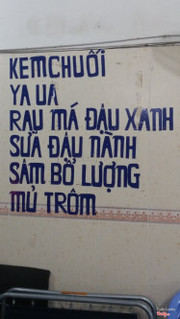 KEM CHUỐI
YA UA
RAU MÁ ĐẬU XANH
SỮA ĐẬU NÀNH
SÂM BỔ LƯỢNG
MỦ TRÔM